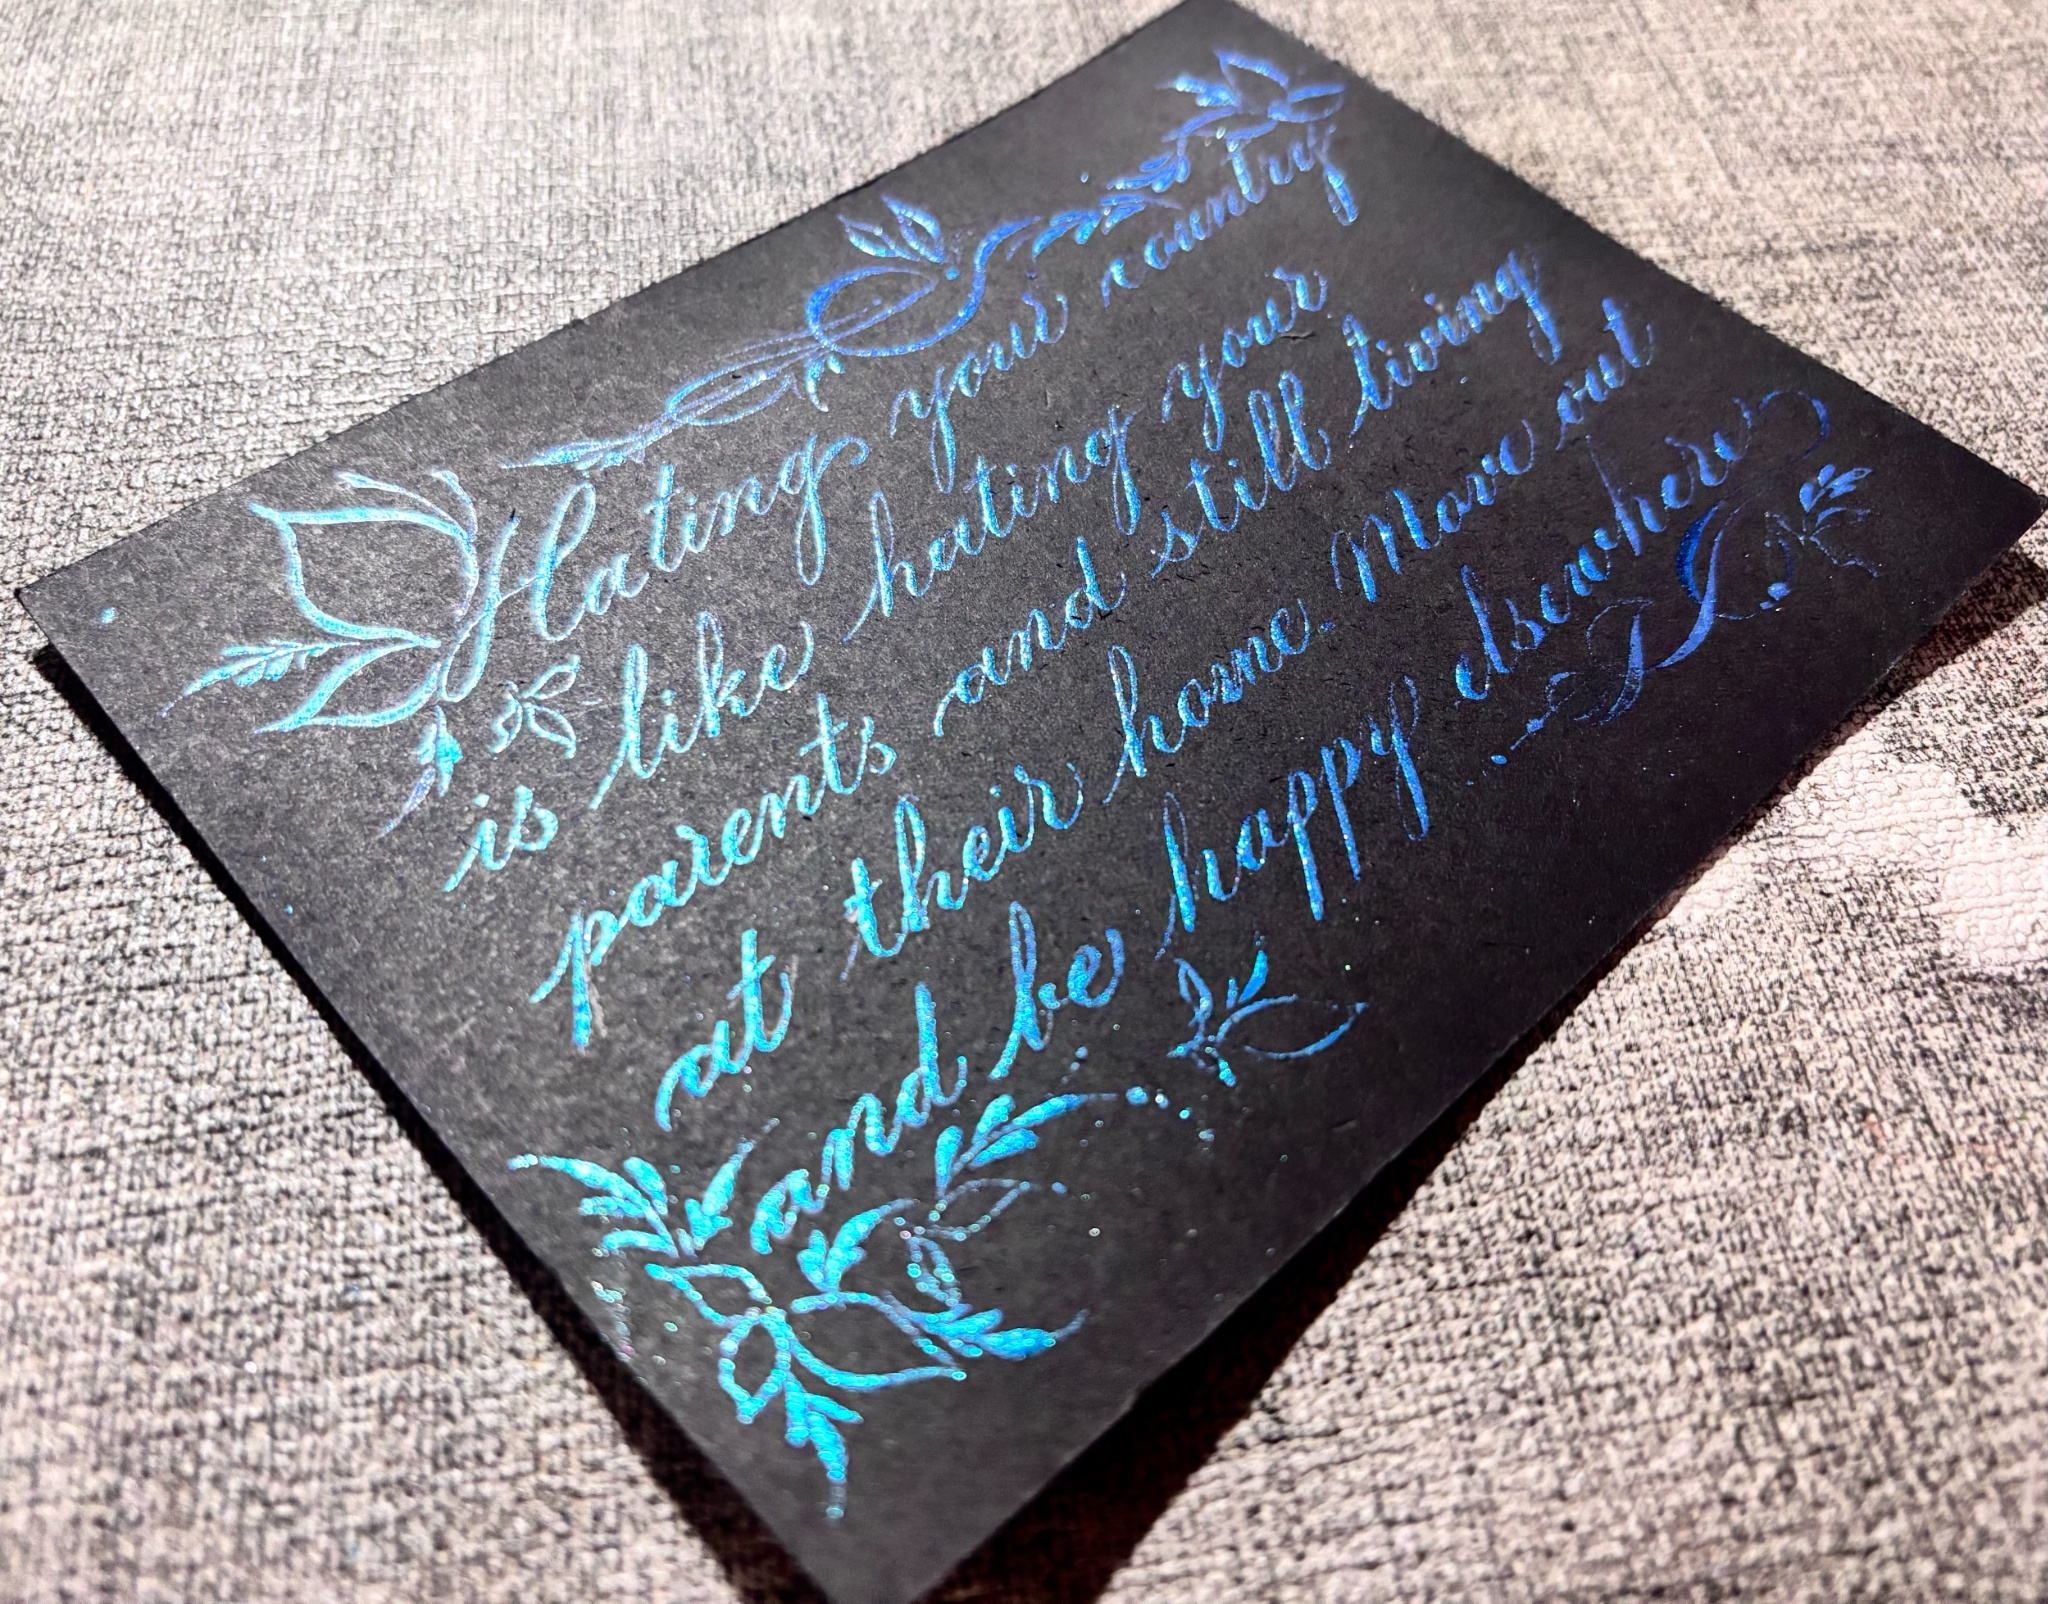 Hating your country
is like hating your
parents and still living
at their home. Move out
and be happy elsewhere